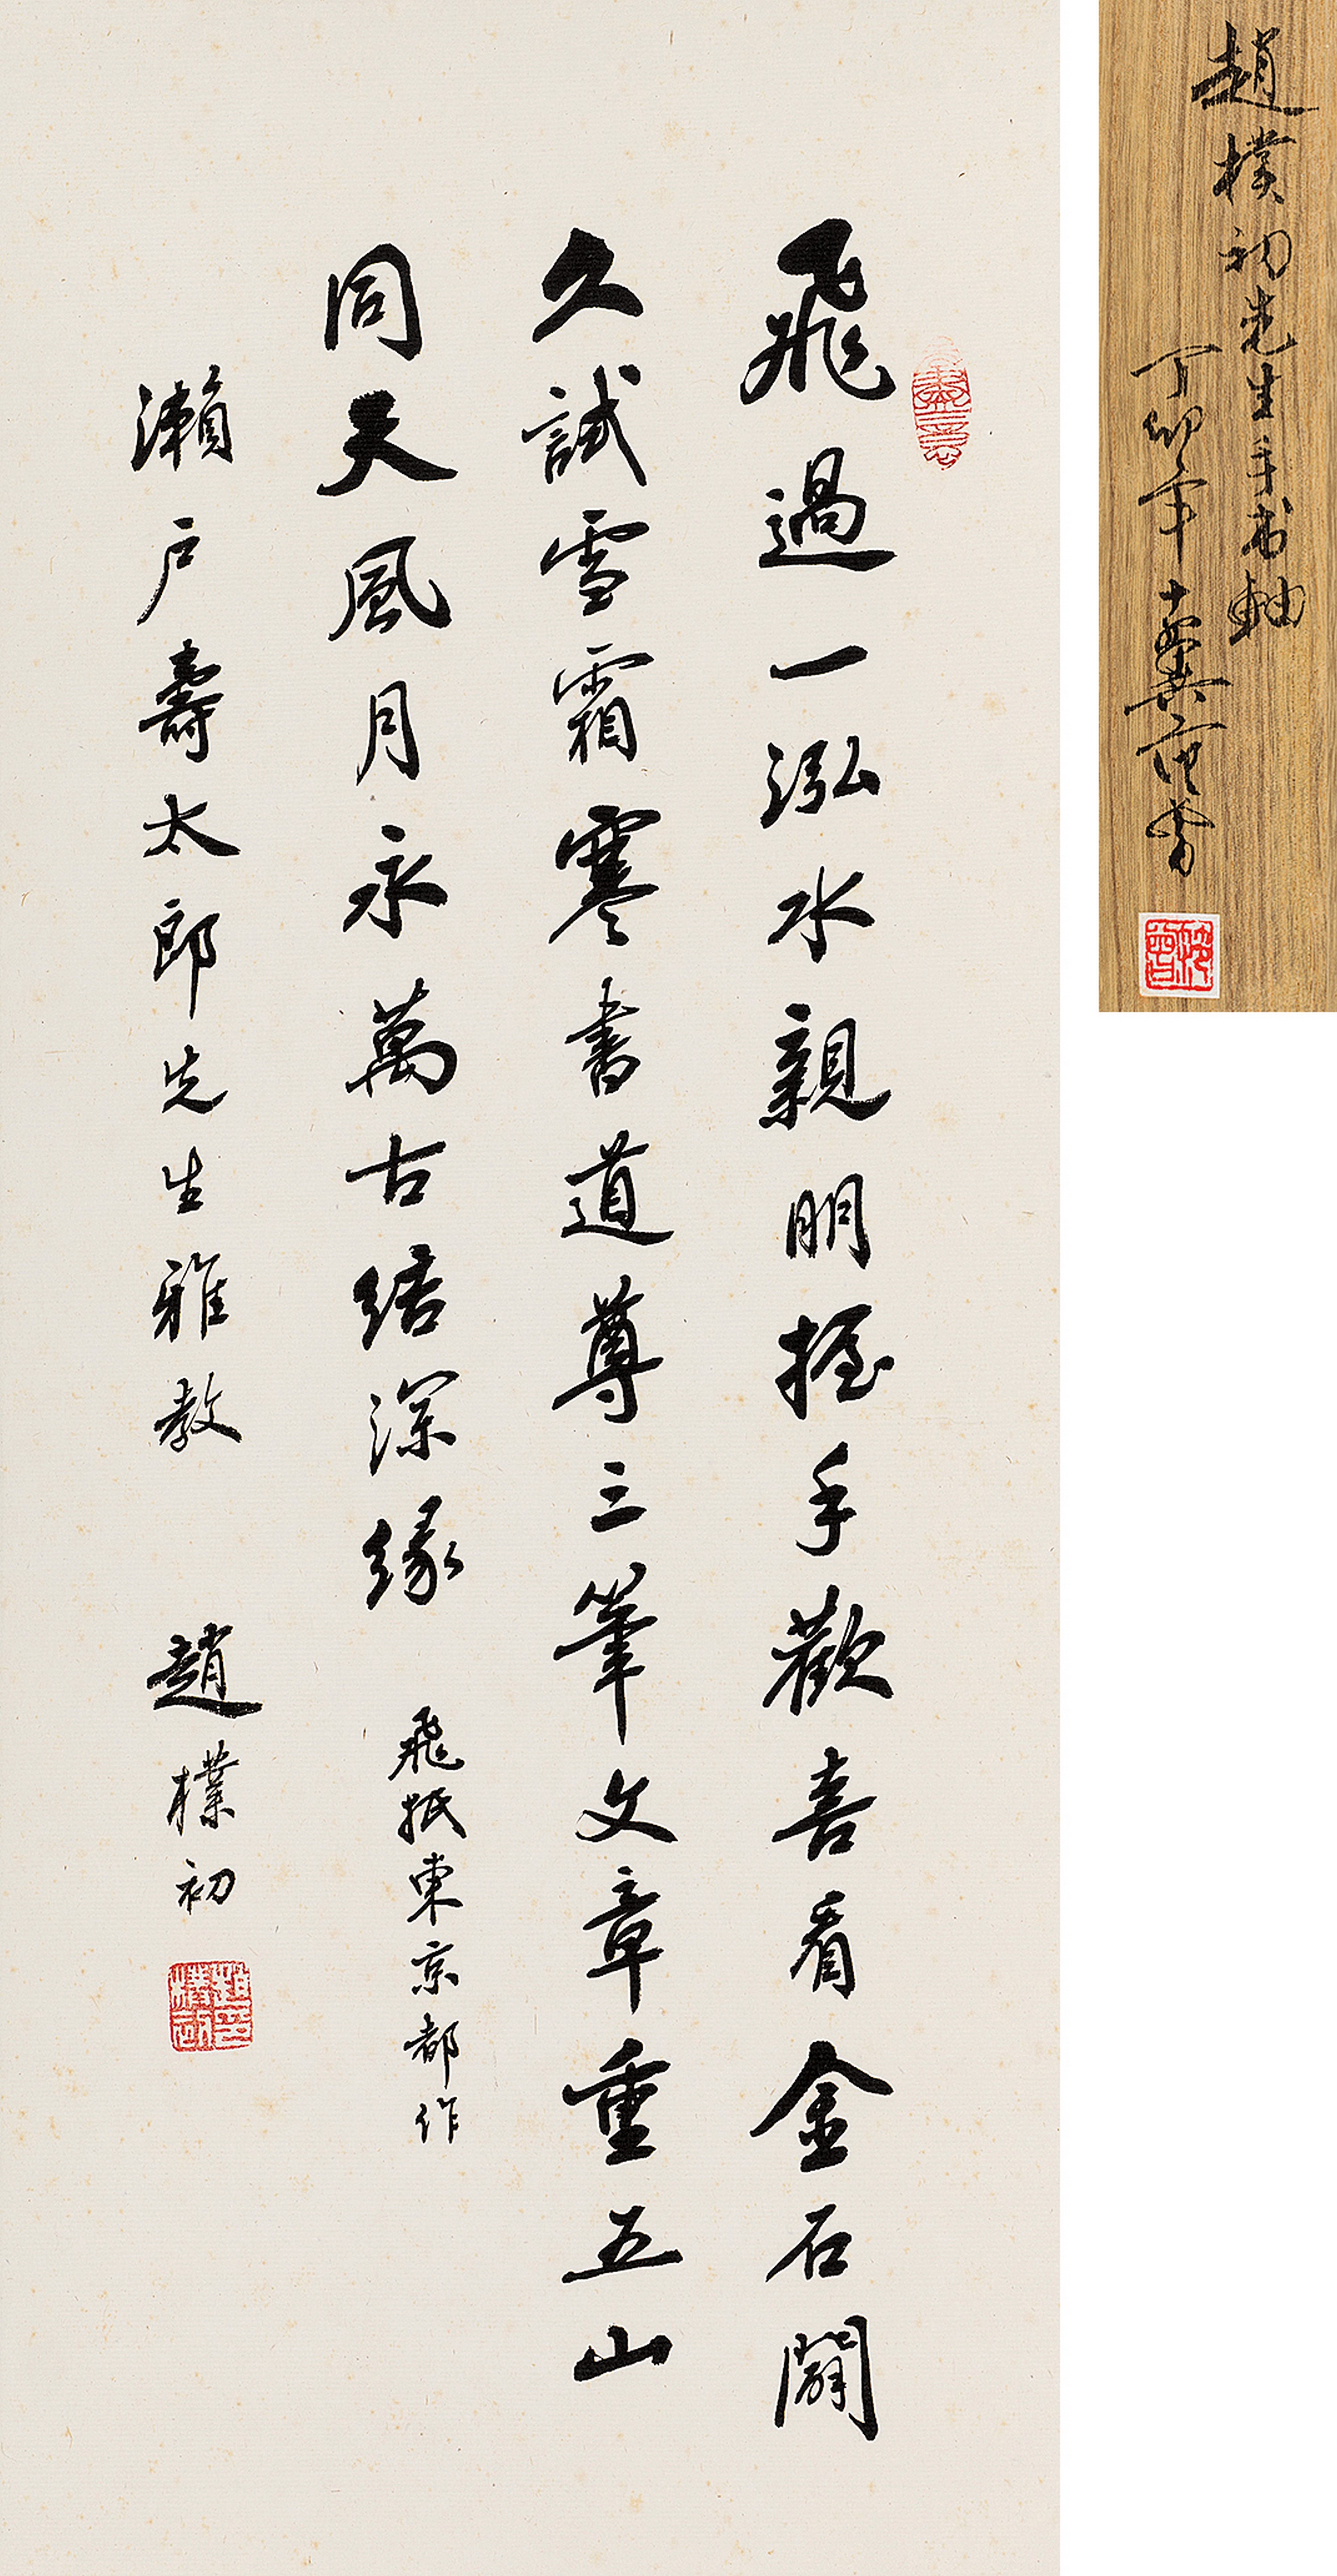 趙樸初先生手书軸
丁卯年十翼范曾
范曾
無盡意
飛過一泓水親朋握手歡喜看金石闢
久試雪霜寒書道尊三筆文章重五山
同天風月永萬古結深緣 飛抵東京都作
瀨戶壽太郎先生雅教 趙樸初
趙樸初印